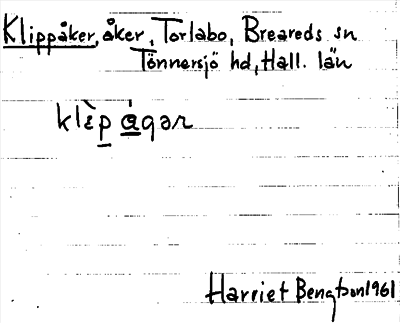 Klippåker, åker, Torlabo, Breareds sn
Tönnersjö hd, Hall. län
klèp ågər
Harriet Bengtson 1961